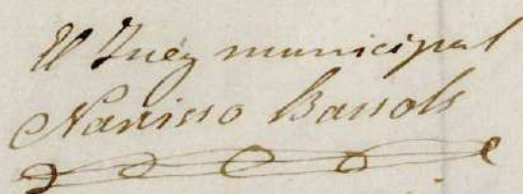 El Juéz municipal
Narciso Bassols